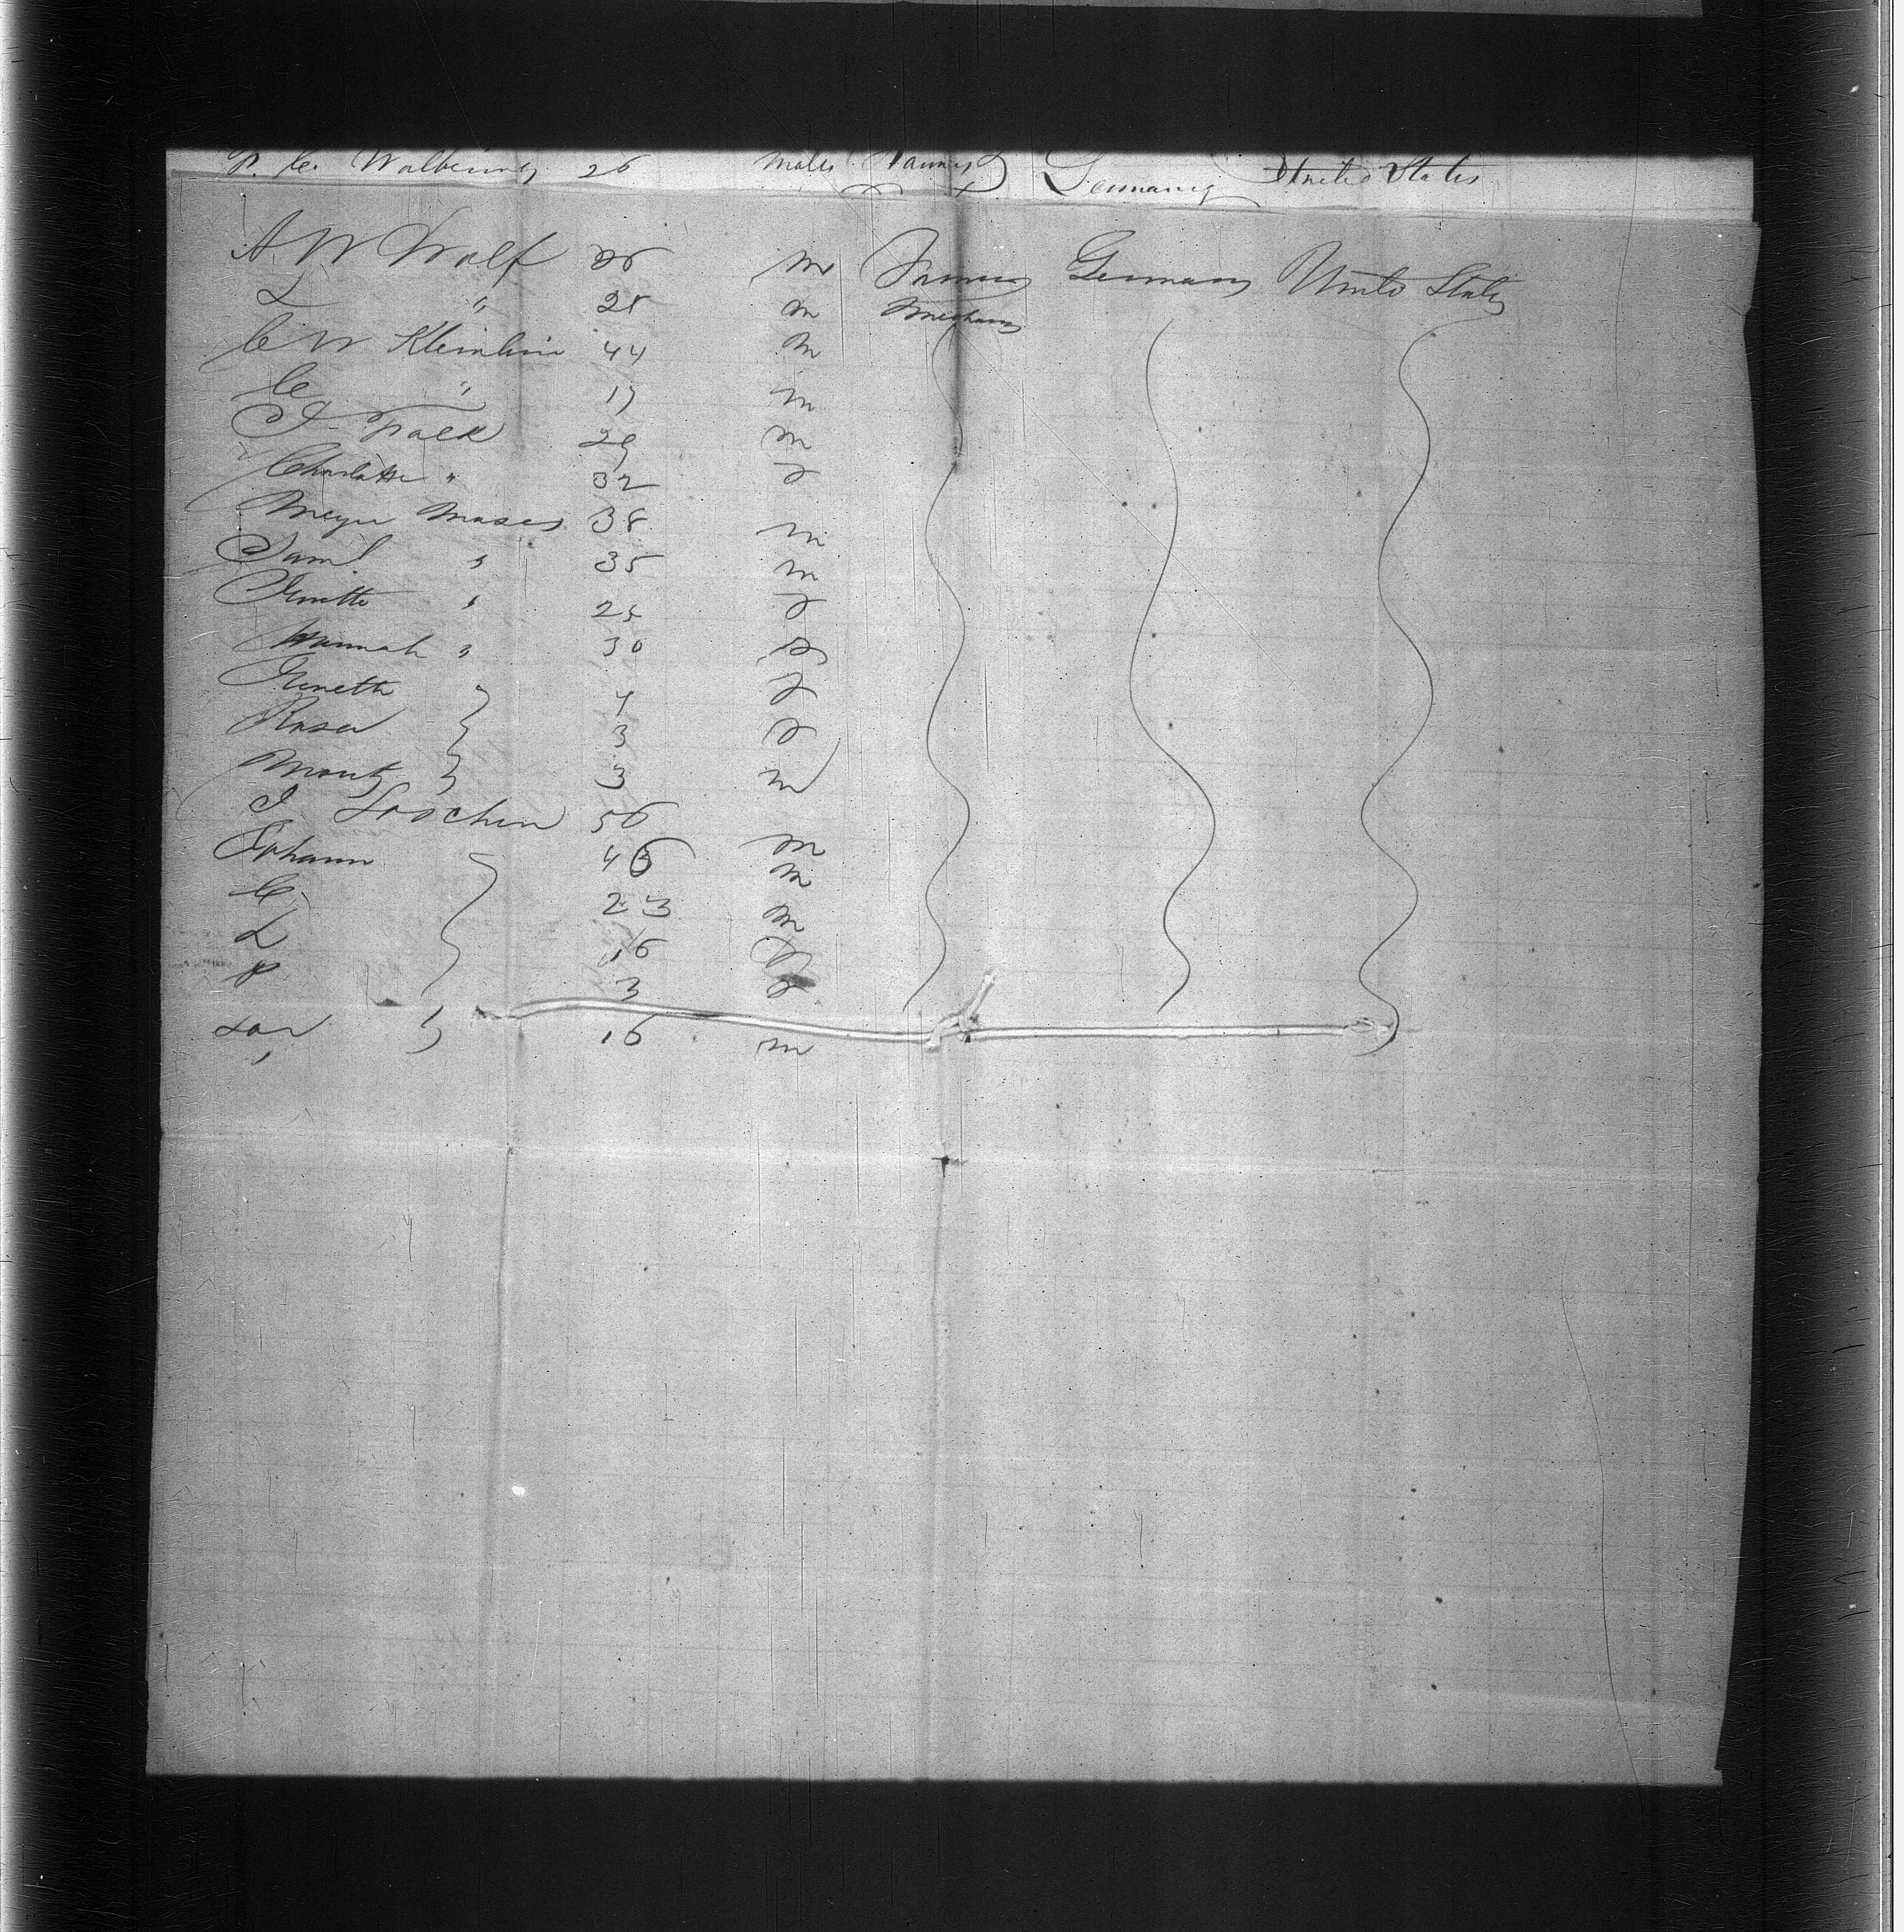 P. C. Walbening 26 Male Farmer Germany United States
A W Wolf 36 m Farmer Germany Unito States
L " 28 m Mechanic
C W Kleinhin 44 m
C " 17 m
I Falk 29 m
Charlotte " 32 f
Meyer Moses 38 m
Saml " 35 m
Jenette " 25 f
Hannah " 30 f
Jenetta " 4 f
Rosa " 3 f
Moritz " 3 m
J Loschen 56
Johann 46 m
C 23 m
L 16
P 3 f
" 16 m